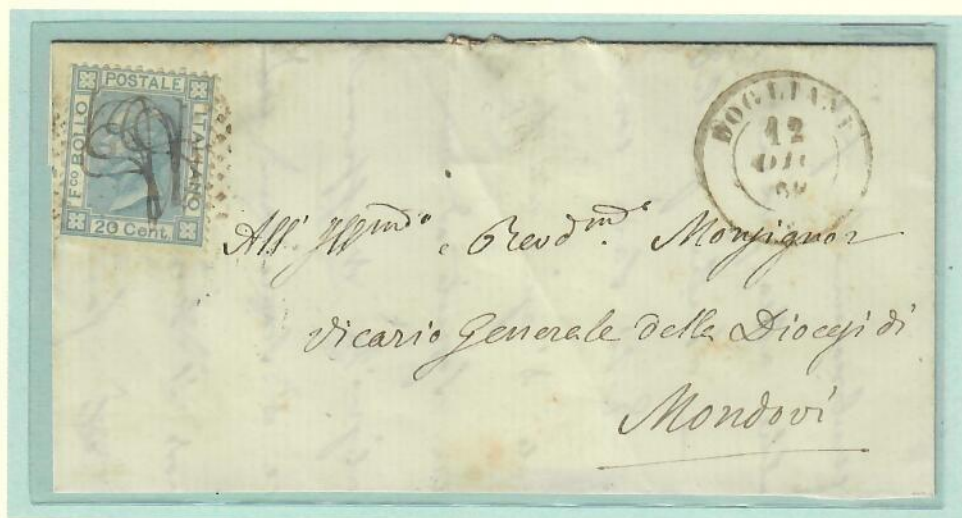 POSTALE
Fco BOLLO
ITALIANO
20 Cent.
DOGLIANI
12
DIC
69
All' Illmo e Revdmo. Monsignor
Vicario Generale della Diocesi di
Mondovì